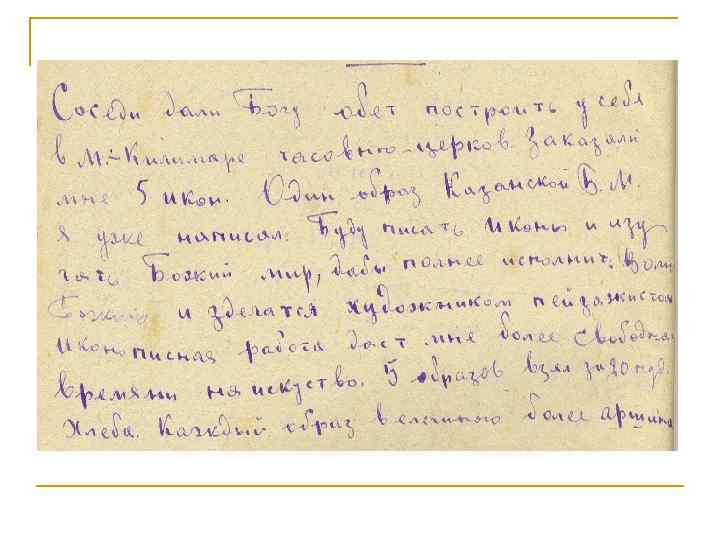 Соседи дали Богу обет построить у себя
в М.-Килимаре часовню-церков. Заказали
мне 5 икон. Один образ Казанской Б. М.
я уже написал. Буду писать иконы и изу
чать Божий мир, дабы полнее исполнит. Волю
Божию и зделатся художником пейзажистом
иконописная работа даст мне более свободнаго
времяни на искуство. 5 образов взял за 20 пуд.
хлеба. Каждый образ величиною более аршина